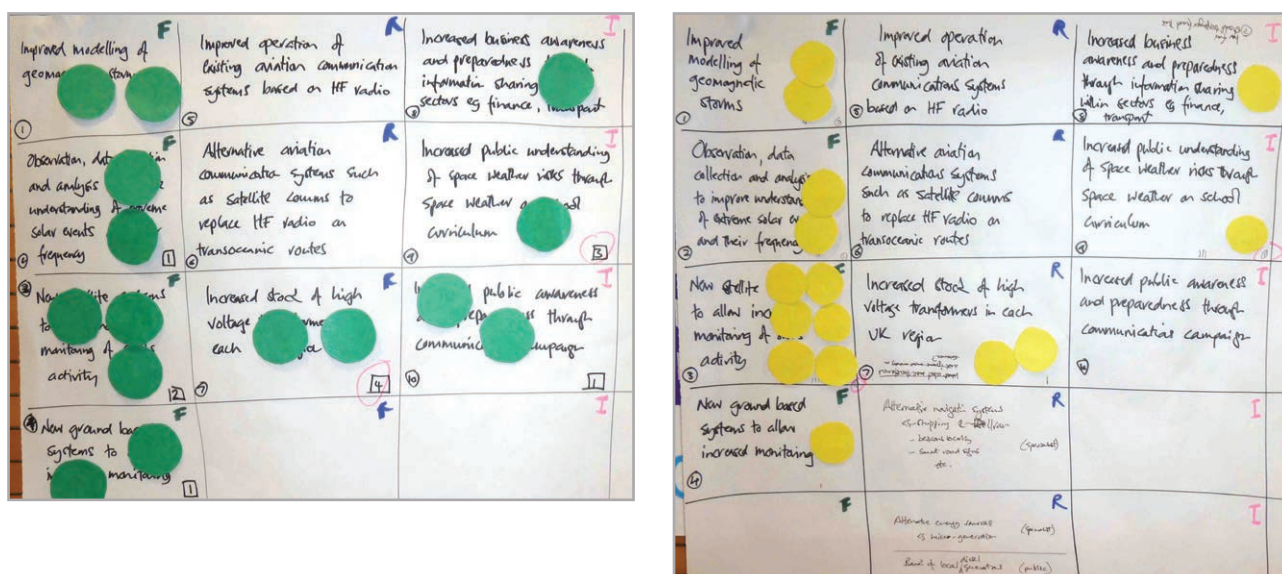 F
Improved modelling of
①
R
Improved operation of
existing aviation communication
systems based on HF radio
⑤
I
Increased business awareness
and preparedness
information sharing
sectors eg finance, transport
⑧
F
Observation, data
and analysis
understanding of extreme
solar events
frequency
1
R
Alternative aviation
communication systems such
as satellite comms to
replace HF radio on
transoceanic routes
⑥
I
Increased public understanding
of space weather risks through
space weather on school
curriculum
⑨
3
F
③
monitoring of
activity
2
R
Increased stock of high
voltage
each
⑦
4
I
public awareness
through
campaign
⑩
1
F
New ground based
systems to
monitoring
1
R
I
F
Improved
modelling of
geomagnetic
storms
①
R
Improved operation
of existing aviation
communications systems
based on HF radio
⑤
I
Increased business
awareness and preparedness
through information sharing
within sectors eg finance,
transport
⑧
F
Observation, data
collection and analysis
to improve
of extreme solar
and their frequency
②
R
Alternative aviation
communications systems
such as satellite comms
to replace HF radio on
transoceanic routes
⑥
I
Increased public understanding
of space weather risks through
space weather on school
curriculum
⑨
New
to allow
monitoring of
activity
③
R
Increased stock of high
voltage transformers in each
UK region
⑦
I
Increased public awareness
and preparedness through
communication campaign
F
New ground based
systems to allow
increased monitoring
④
R
Alternative systems
eg shipping
etc.
I
F
R
Alternative energy sources
eg micro-generation
Bank of local diesel generators (public)
I